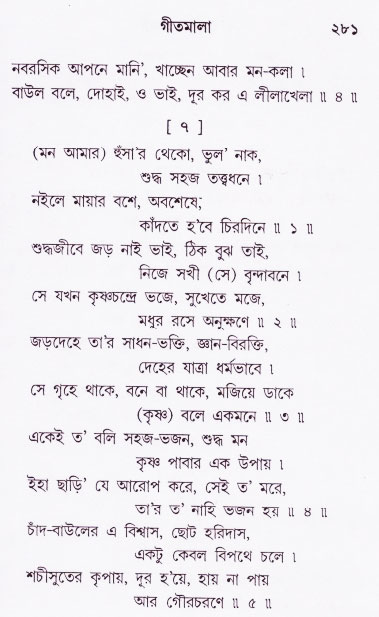 গীতমালা ২৮১
নবরসিক আপনে মানি’, খাচ্ছেন আবার মন-কলা ।
বাউল বলে, দোহাই, ও ভাই, দূর কর এ লীলাখেলা ॥ ৪ ॥
[ ৭ ]
(মন আমার) হুঁসা’র থেকো, ভুল’ নাক,
শুদ্ধ সহজ তত্ত্বধনে ।
নইলে মায়ার বশে, অবশেষে;
কাঁদতে হ’বে চিরদিনে ॥ ১ ॥
শুদ্ধজীবে জড় নাই ভাই, ঠিক বুঝ তাই,
নিজে সখী (সে) বৃন্দাবনে ।
সে যখন কৃষ্ণচন্দ্রে ভজে, সুখেতে মজে,
মধুর রসে অনুক্ষণে ॥ ২ ॥
জড়দেহে তা’র সাধন-ভক্তি, জ্ঞান-বিরক্তি,
দেহের যাত্রা ধর্মভাবে ।
সে গৃহে থাকে, বনে বা থাকে, মজিয়ে ডাকে
(কৃষ্ণ) বলে একমনে ॥ ৩ ॥
একেই ত’ বলি সহজ-ভজন, শুদ্ধ মন
কৃষ্ণ পাবার এক উপায় ।
ইহা ছাড়ি’ যে আরোপ করে, সেই ত’ মরে,
তা’র ত’ নাহি ভজন হয় ॥ ৪ ॥
চাঁদ-বাউলের এ বিশ্বাস, ছোট হরিদাস,
একটু কেবল বিপথে চলে ।
শচীসুতের কৃপায়, দূর হ’য়ে, হায় না পায়
আর গৌরচরণে ॥ ৫ ॥